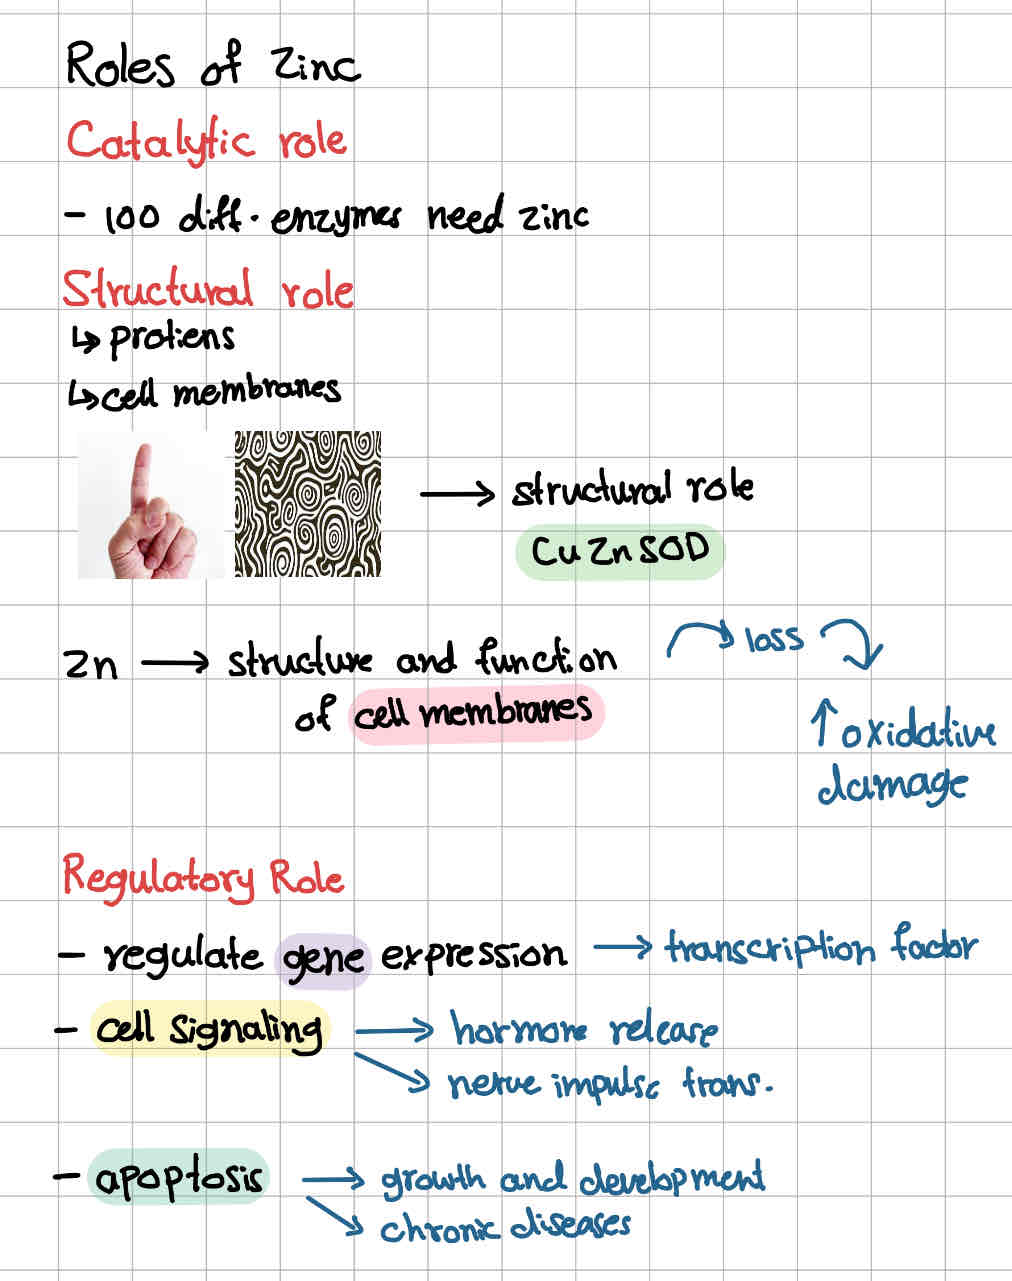 Roles of Zinc
Catalytic role
- 100 diff. enzymes need zinc
Structural role
↳ protiens
↳ cell membranes
→ structural role
Cu Zn SOD
Zn → structure and function
of cell membranes
loss
↑ oxidative
damage
Regulatory Role
- regulate gene expression → transcription factor
- cell signaling → hormore release
→ nerve impulse trans.
- apoptosis → growth and development
→ chronic diseases